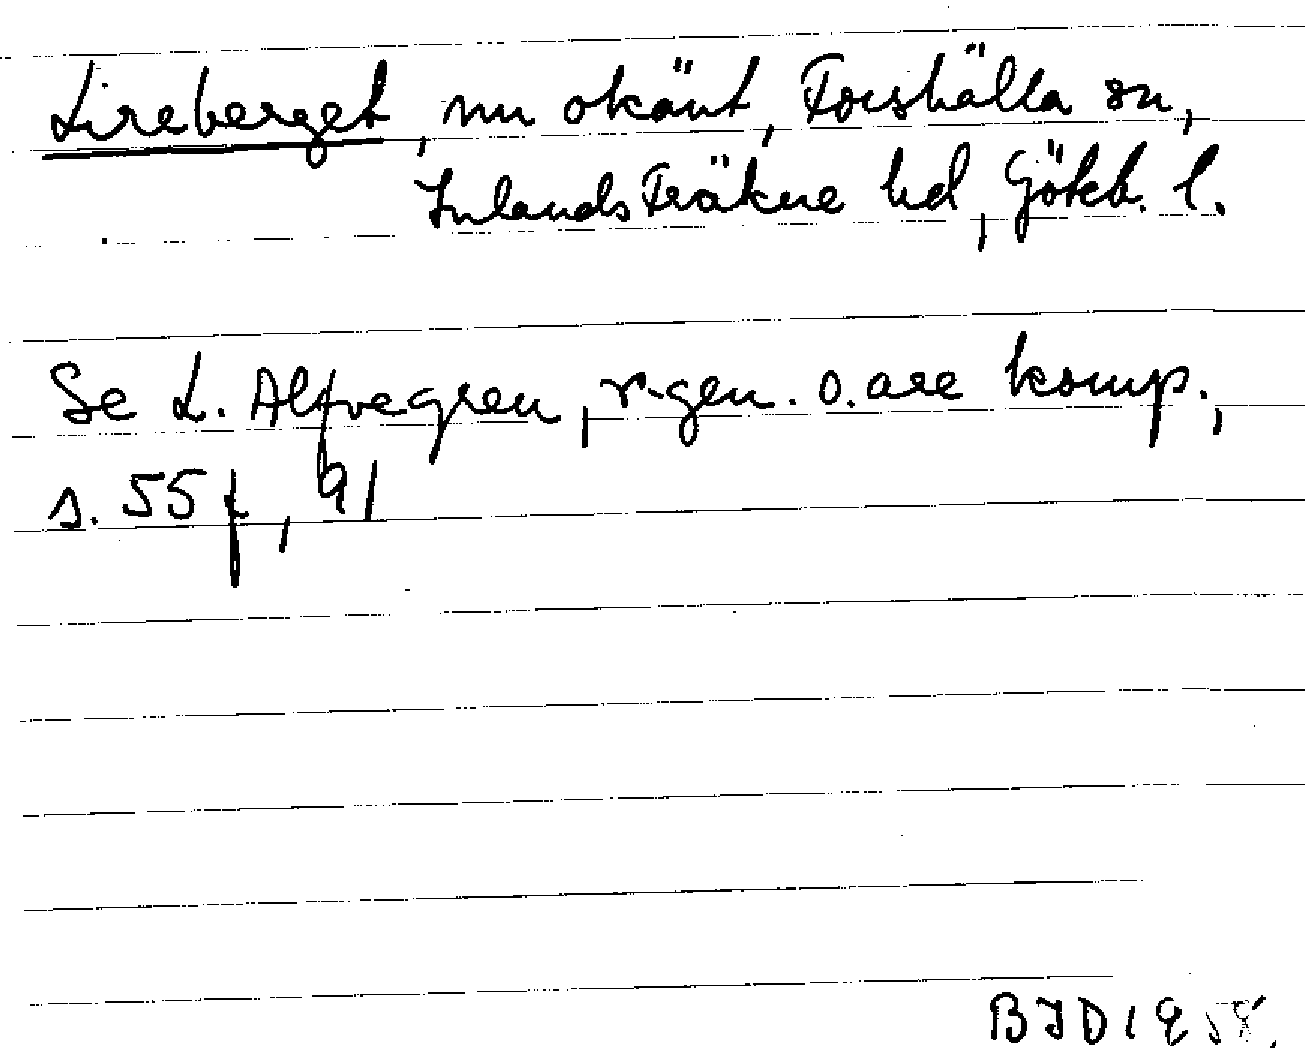 Lireberget, nu okänt, Forshälla sn,
Inlands Fräkne hd, Göteb. l.
Se L. Alfvegren, r-gen. o. are komp.,
s. 55 f, 91
BJD 1958.